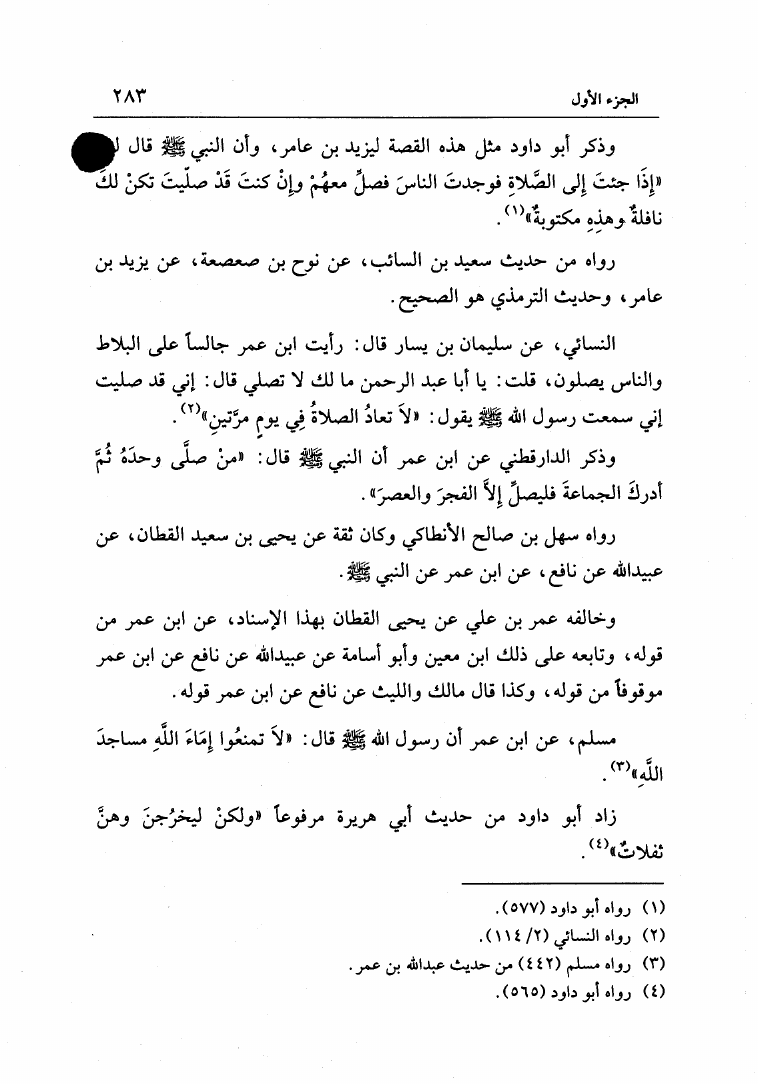 الجزء الأول ٢٨٣
وذكر أبو داود مثل هذه القصة ليزيد بن عامر، وأن النبي ﷺ قال
«إِذَا جئتَ إلى الصَّلاةِ فوجدتَ الناسَ فصلِّ معهُمْ وإِنْ كنتَ قَدْ صلّيتَ تكنْ لكَ
نافلةٌ وهذِهِ مكتوبةٌ»(١).
رواه من حديث سعيد بن السائب، عن نوح بن صعصعة، عن يزيد بن
عامر، وحديث الترمذي هو الصحيح.
النسائي، عن سليمان بن يسار قال: رأيت ابن عمر جالساً على البلاط
والناس يصلون، قلت: يا أبا عبد الرحمن ما لك لا تصلي قال: إني قد صليت
إني سمعت رسول الله ﷺ يقول: «لاَ تعادُ الصلاةُ فِي يومٍ مرَّتينِ»(٢).
وذكر الدارقطني عن ابن عمر أن النبي ﷺ قال: «منْ صلَّى وحدَهُ ثُمَّ
أدركَ الجماعةَ فليصلِّ إلاَّ الفجرَ والعصرَ».
رواه سهل بن صالح الأنطاكي وكان ثقة عن يحيى بن سعيد القطان، عن
عبيدالله عن نافع، عن ابن عمر عن النبي ﷺ.
وخالفه عمر بن علي عن يحيى القطان بهذا الإسناد، عن ابن عمر من
قوله، وتابعه على ذلك ابن معين وأبو أسامة عن عبيدالله عن نافع عن ابن عمر
موقوفاً من قوله، وكذا قال مالك والليث عن نافع عن ابن عمر قوله.
مسلم، عن ابن عمر أن رسول الله ﷺ قال: «لاَ تمنعُوا إِمَاءَ اللَّهِ مساجدَ
اللَّهِ»(٣).
زاد أبو داود من حديث أبي هريرة مرفوعاً «ولكنْ ليخرُجنَ وهنَّ
ثفلاتٌ»(٤).
(١) رواه أبو داود (٥٧٧).
(٢) رواه النسائي (٢/ ١١٤).
(٣) رواه مسلم (٤٤٢) من حديث عبدالله بن عمر.
(٤) رواه أبو داود (٥٦٥).